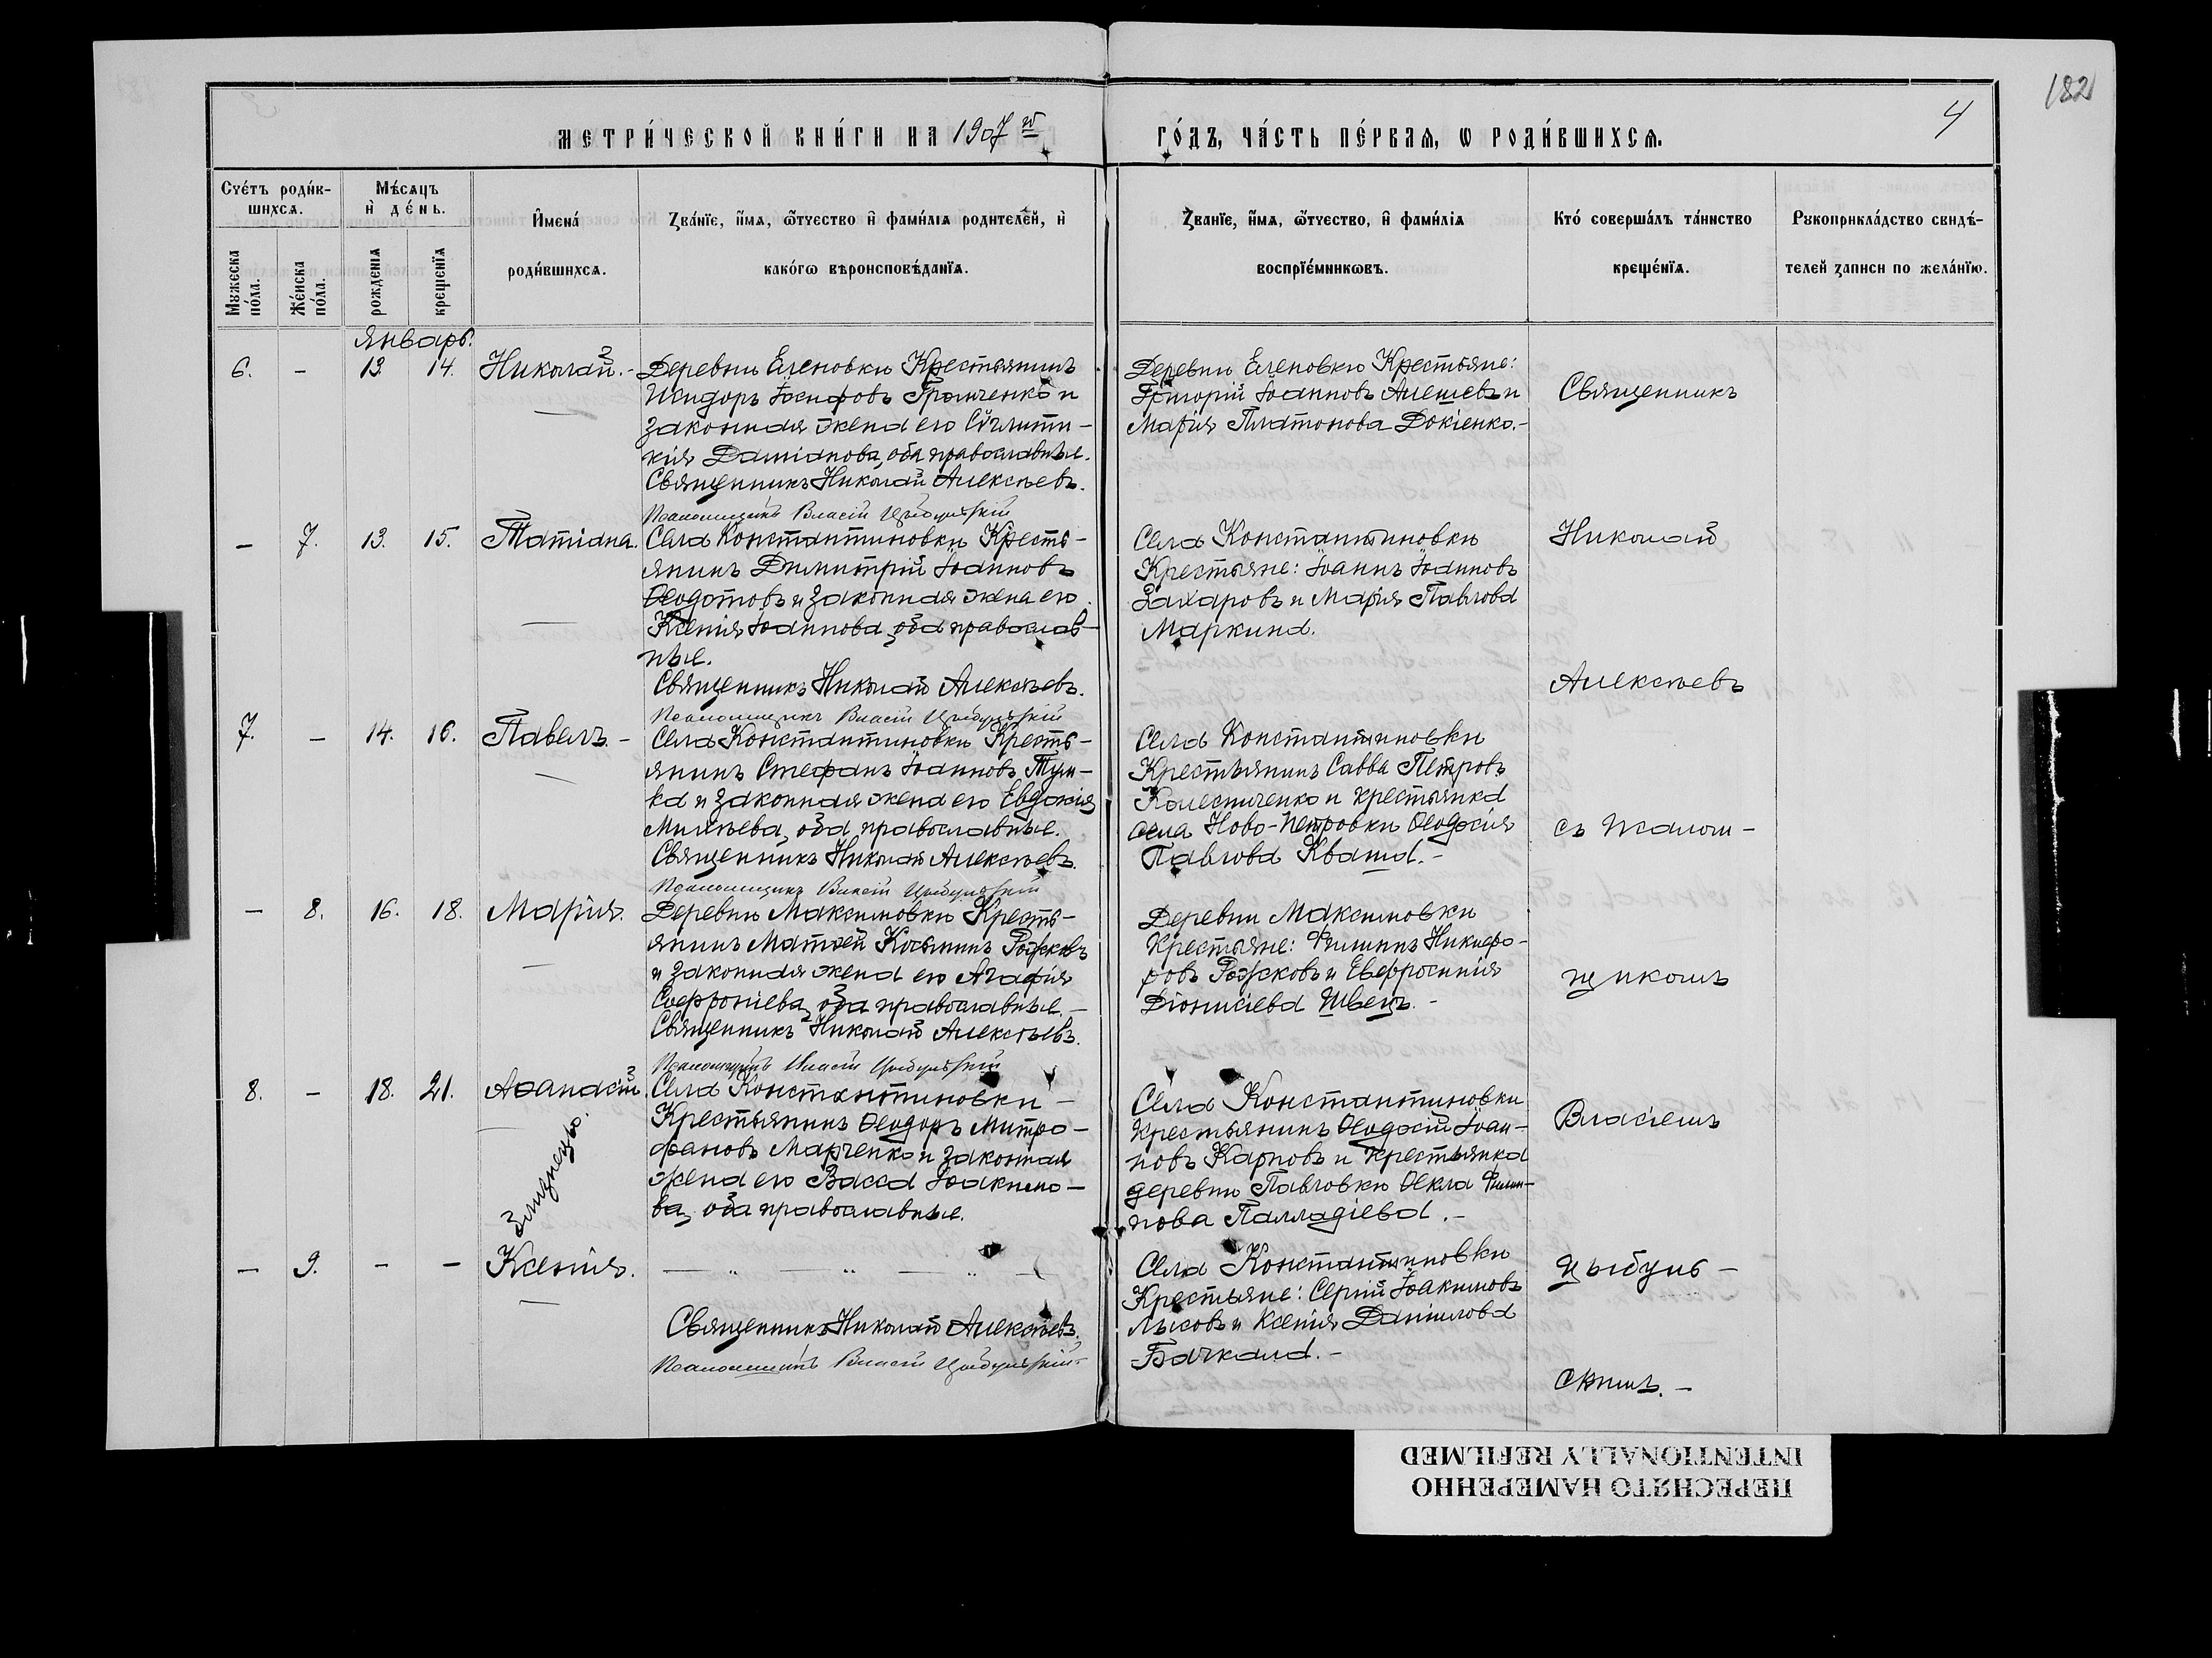 182
4
МЕТРИ́ЧЕСКОЙ КНИ́ГИ НА 1907 й
ГО́ДЪ, ЧА́СТЬ ПЕ́РВАѦ, Ѡ РОДИ́ВШИХСѦ.
Сче́тъ роди́в-
шихсѧ.
Мꙋжеска по́ла.
Же́нска по́ла.
Мѣ́сѧцъ
и҆ де́нь.
рожденїѧ
крещенїѧ
И҆мена́
роди́вшихсѧ.
Зва́нїе, и҆́мѧ, ѻ҆́тчество и҆ фами́лїѧ родителе́й, и҆
како́гѡ вѣроисповѣ́данїѧ.
Зва́нїе, и҆́мѧ, ѻ҆́тчество, и҆ фами́лїѧ
воспрїе́мникѡвъ.
Кто́ соверша́лъ та́инство
креще́нїѧ.
Рꙋкоприкла́дство свидѣ́-
телей записи по жела́нїю.
Январь.
6. - 13. 14. Николай.-
Деревни Еленовки Крестьянинъ
Исидоръ Іосифовъ Громченко и
законная жена его Сvглити-
кія Даміанова, оба православные.
Священникъ Николай Алексѣевъ.
Псаломщикъ Власій Цыбульскій
Деревни Еленовки Крестьяне:
Григорій Іоанновъ Алешевъ и
Марія Платонова Докіенко.-
Священникъ
- 7. 13. 15. Татіана.
Села Константиновки Кресть-
янинъ Димитрій Іоанновъ
Ѳеодотовъ и законная жена его
Ксенія Іоаннова, оба православ-
ные.
Священникъ Николай Алексѣевъ.
Псаломщикъ Власій Цыбульскій
Села Константиновки
Крестьяне: Іоаннъ Іоанновъ
Захаровъ и Марія Павлова
Маркина.
Николай
Алексѣевъ
7. - 14. 16. Павелъ.-
Села Константиновки Кресть-
янинъ Стефанъ Іоанновъ
и законная жена его Евдокія
оба православные.
Священникъ Николай Алексѣевъ.
Псаломщикъ Власій Цыбульскій
Села Константиновки
Крестьянинъ Савва Петровъ
Колесниченко и крестьянка
села Ново-Петровки Ѳеодосія
Павлова Кваша.-
съ Псалом-
- 8. 16. 18. Марія.
Деревни Максимовки Кресть-
янинъ Матѳей Косьминъ Рожковъ
и законная жена его Агафія
Софроніева, оба православные.-
Священникъ Николай Алексѣевъ.
Псаломщикъ Власій Цыбульскій
Деревни Максимовки
Крестьяне: Филиппъ Никифо-
ровъ Рожковъ и Евфросинія
Діонисіева Швецъ.-
щикомъ
8. - 18. 21. Аѳанасій.
Близнецы.
Села Константиновки -
Крестьянинъ Ѳеодоръ Митро-
фановъ Марченко и законная
жена его Васса Іоакимо-
ва, оба православные.
Села Константиновки
крестьянинъ Ѳеодосій Іоан-
новъ Карповъ и крестьянка
деревни Павловки Ѳекла Филип-
пова Палладіева.-
Власіемъ
- 9. - - Ксенія.
— „ — „ — „ —
Священникъ Николай Алексѣевъ.
Псаломщикъ Власій Цыбульскій-
Села Константиновки
Крестьяне: Сергій Іоакимовъ
Лысовъ и Ксенія Даніилова
Бачкала.-
Цыбуль-
скимъ.-
ПЕРЕСНЯТО НАМЕРЕННО
INTENTIONALLY REFILMED